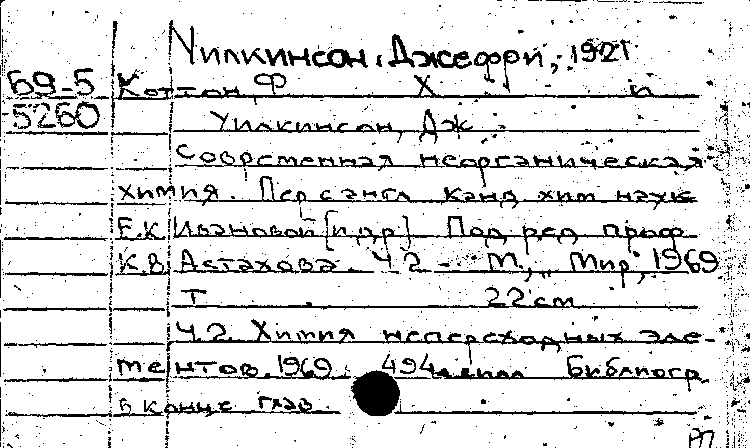 Уилкинсон, Джефри, 1921
Б9-5 Коттон, Ф Х и
5260 Уилкинсон, Дж.
Современная неорганическая
химия. Пер с англ канд хим наук
Е.К Ивановой [и др] Под ред проф
К.В Астахова. Ч 2 - М, "Мир", 1969
Т 22 см
Ч.2. Химия непереходных эле-
ментов. 1969. 494 с илл Библиогр
в конце глав